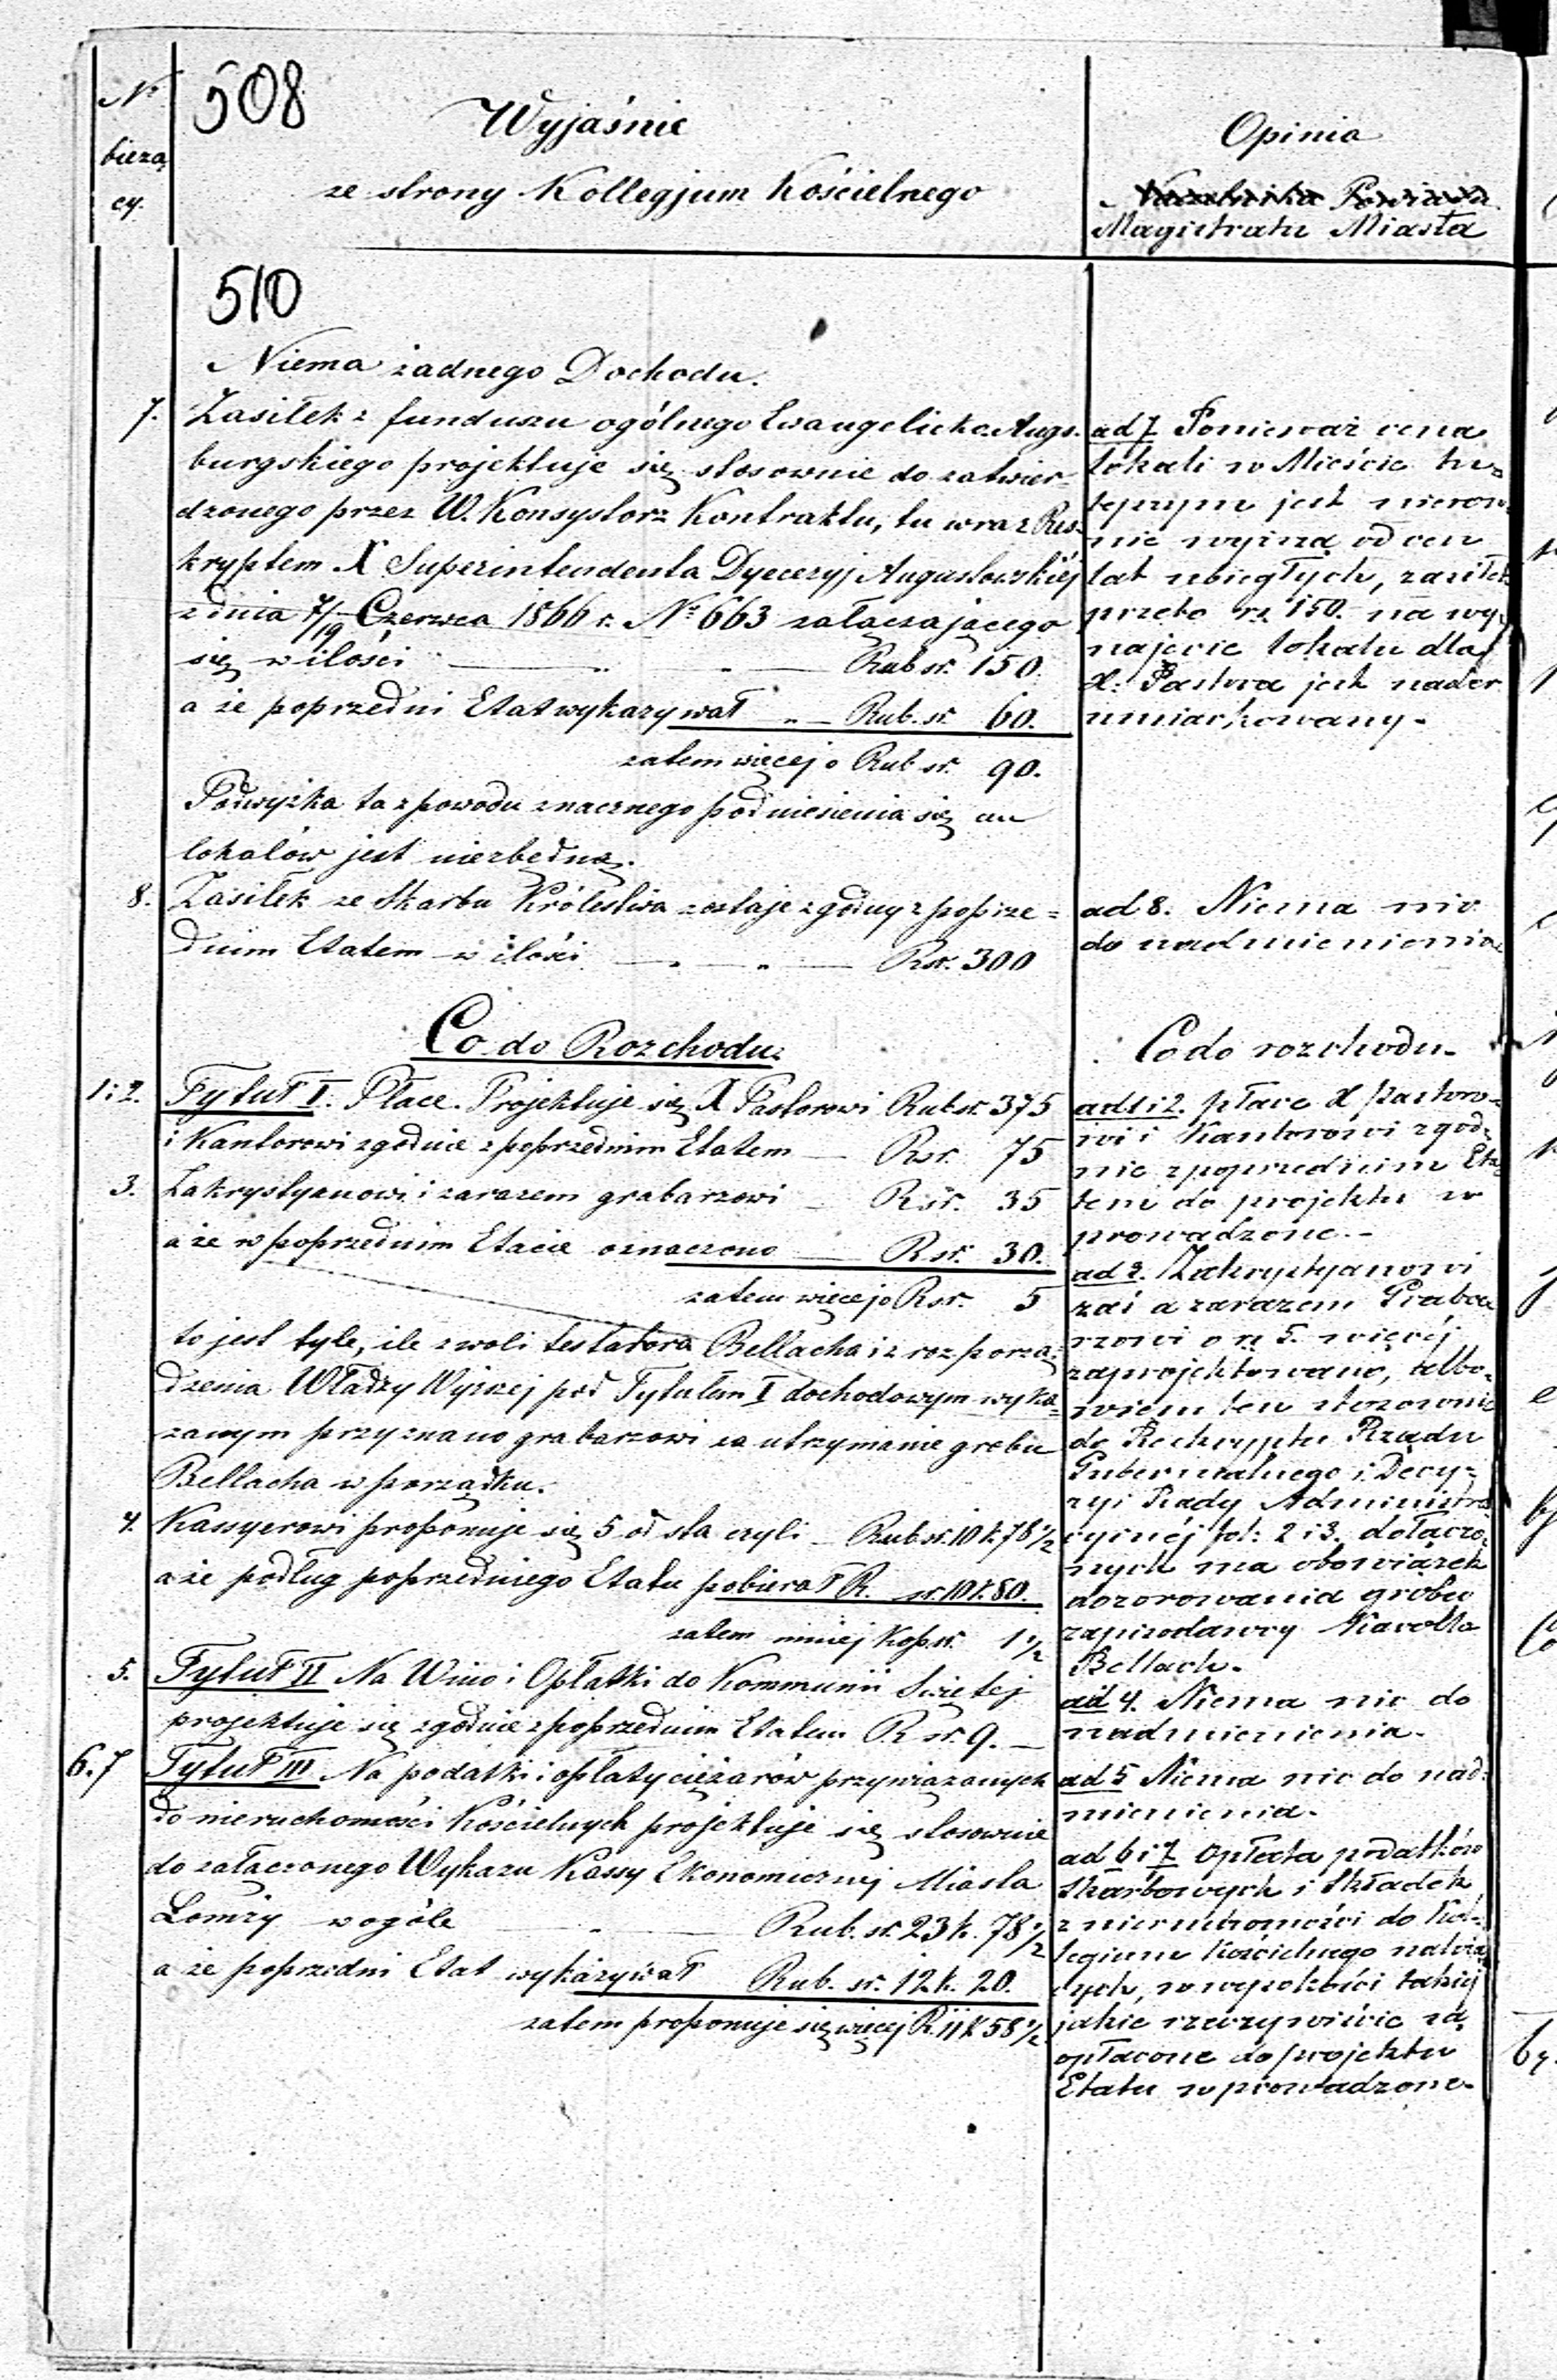 Nº
bieżą
cy.
508
Wyjaśnie
ze strony Kollegjum Kościelnego
Opinia
Naczelnika Powiatu
Magistratu Miasta
510
Niema żadnego Dochodu.
7. Zasiłek z funduszu ogólnego Ewangelicko Augs.
burgskiego projektuje się stosownie do zatwier-
dzonego przez W. Konsystorz Kontraktu, tu wraz Res-
kryptem X Superintendenta Dyecezyj Augustowskiéj
z dnia 7/19 Czerwca 1866 r. Nº 663 załączającego
się w ilości — „ „ — Rub sr. 150.
a że poprzedni Etat wykazywał „ — Rub. sr. 60.
zatem więcej o Rub sr. 90.
Podwyżka ta z powodu znacznego podniesienia się cen
lokalów jest niezbędną.
8. Zasiłek ze Skarbu Królestwa zostaje zgodny z poprze=
dnim Etatem w ilości — „ — „ — Rsr. 300
Co do Rozchodu:
1i2. Tytuł I. Płace. Projektuje się X Pastorowi Rub sr. 375
i Kantorowi zgodnie z poprzednim Etatem — Rsr. 75
3. Zakrystyanowi i zarazem grabarzowi — Rsr. 35
a że w poprzednim Etacie oznaczono — Rsr. 30.
zatem więcej o Rsr. 5
to jest tyle, ile z woli testatora Bellacha i z rozporzą=
dzenia Władzy Wyższej pod Tytułem I dochodowym wyka=
zanym przyznano grabarzowi za utrzymanie grobu
Bellacha w porządku.
4. Kassyerowi proponuje się 5 od sta czyli — Rub sr. 10 k. 78 1/2
a że podług poprzedniego Etatu pobierał R. sr. 10 k. 80.
zatem mniej Kop. sr. 1 1/2
5. Tytuł II Na Wino i Opłatki do Kommunii Świętej
projektuje się zgodnie z poprzednim Etatem R sr. 9. —
6.7 Tytuł III Na podatki i opłaty ciężarów przywiązanych
do nieruchomości Kościelnych projektuje się stosownie
do załączonego Wykazu Kassy Ekonomicznej Miasta
Łomży w ogóle — „ — Rub. sr. 23 k. 78 1/2
a że poprzedni Etat wykazywał Rub. sr. 12 k. 20.
zatem proponuje się więcej R. 11 k 58 1/2
ad 7 Ponieważ cena
lokali w Mieście tu=
tejszym jest nierów
nie wyższą od cen
lat ubiegłych, zasiłek
przeto rs. 150. na wy
najęcie lokalu dla
X: Pastora jest nader
umiarkowany.
ad 8. Niema nic
do nadmienienia
Co do rozchodu.
ad 1 i 2. płace X Pastoro-
wi i Kantorowi zgod=
nie z poprzednim Eta
tem do projektu w
prowadzone.
ad 3. Zakrystyanowi
zaś a zarazem Graba
rzowi o rs 5. więcéj
zaprojektowano, albo-
wiem ten stosownie
do Reskryptu Rządu
Gubernialnego i Decy=
zyi Rady Administra
cyjnéj fol: 2 i 3. dołączo
nych ma obowiązek
dozorowania grobu
zapisodawcy Karolla
Bellach.
ad 4. Niema nic do
nadmienienia.
ad 5 Niema nic do nad=
mienienia.
ad 6 i 7 Opłata podatków
Skarbowych i Składek
z nieruchomości do Kol-
legium Kościelnego należą
cych, w wysokości takiej
jakie rzeczywiście są
opłacone do projektu
Etatu wprowadzono.